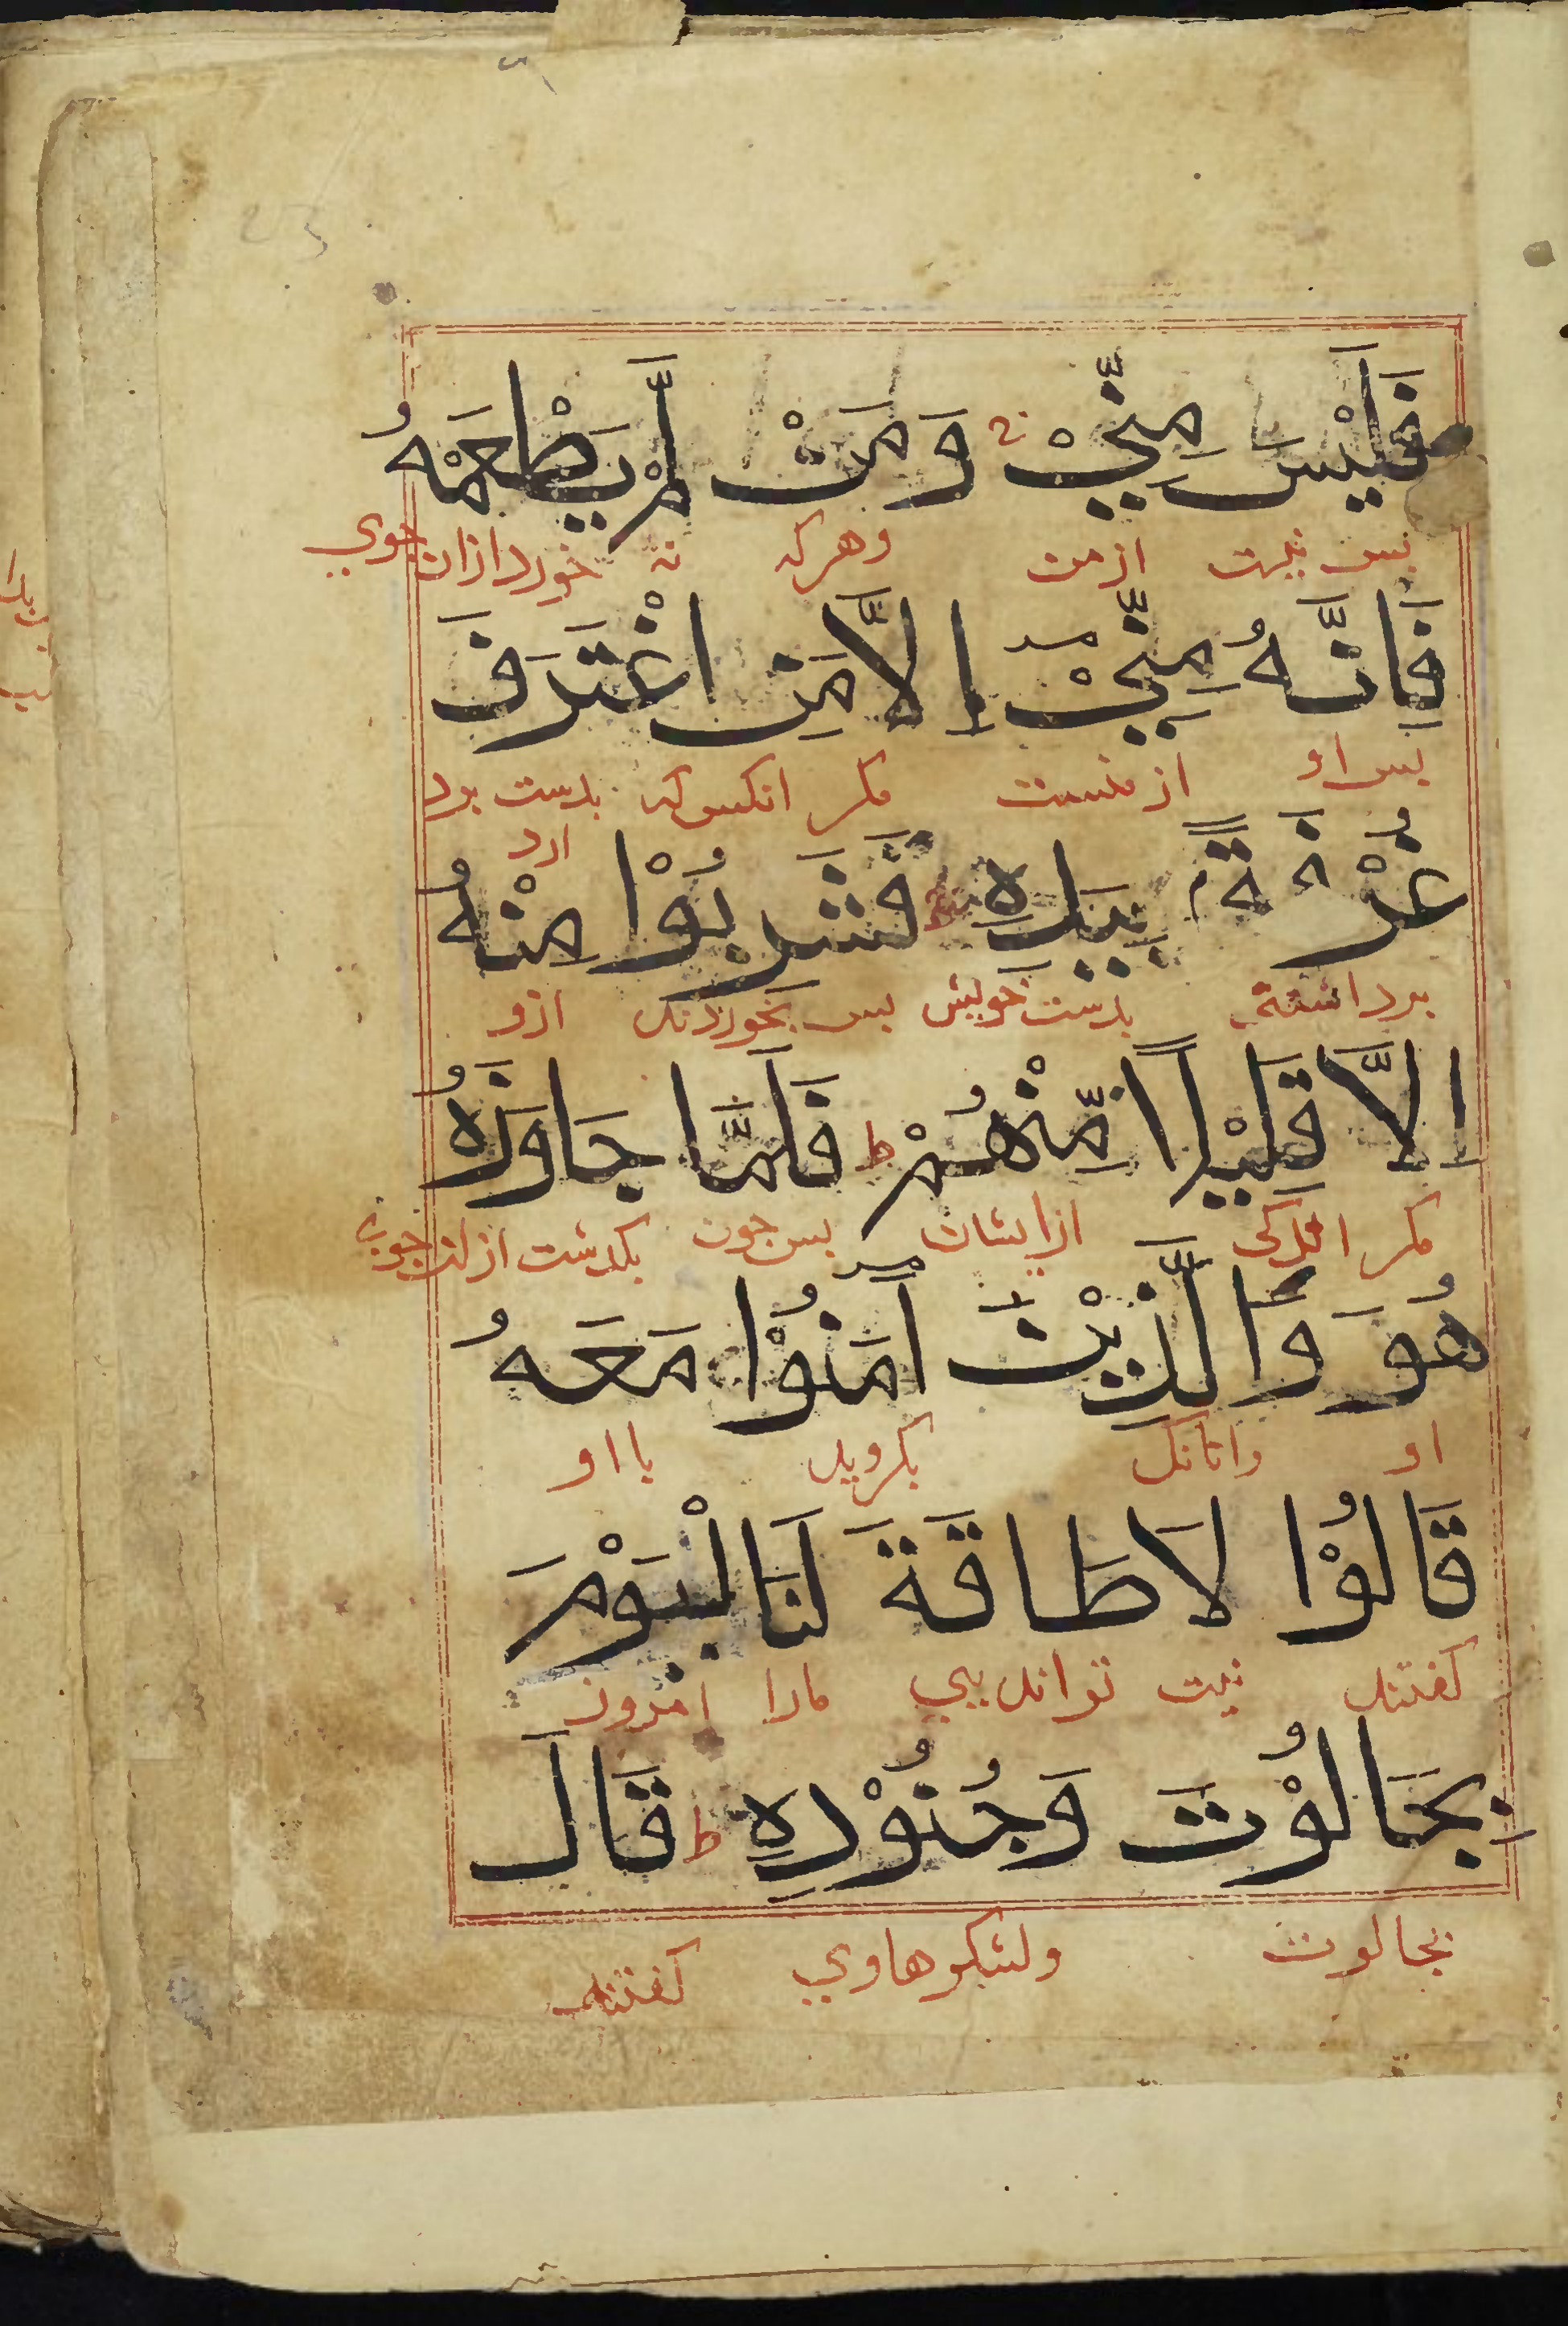 فَلَيْسَ مِنِّيْ ج وَمَنْ لَّمْ يَطْعَمْهُ
بس نیست ازمن وهرکه نه خورد ازان جوي
فَاِنَّهُ مِنِّيْ اِلَّا مَنِ اغْتَرَفَ
بس او از منست مکر انکس که بدست برد
ارد
غُرْفَةً بِيَدِهِ فَشَرِبُوْا مِنْهُ
برداشته بدست خویش بس بخوردند ازو
اِلَّا قَلِيْلًا مِّنْهُمْ ط فَلَمَّا جَاوَزَهُ
مکر اندکی ازایشان بس جون بکدشت ازان جوي
هُوَ وَالَّذِيْنَ آمَنُوْا مَعَهُ
او وانانک بکروید بااو
قَالُوْا لَا طَاقَةَ لَنَا الْيَوْمَ
کفتند نیست توانایي مارا امروز
بِجَالُوْتَ وَجُنُوْدِهِ ط قَالَ
بجالوت ولشکرهاوي کفتند